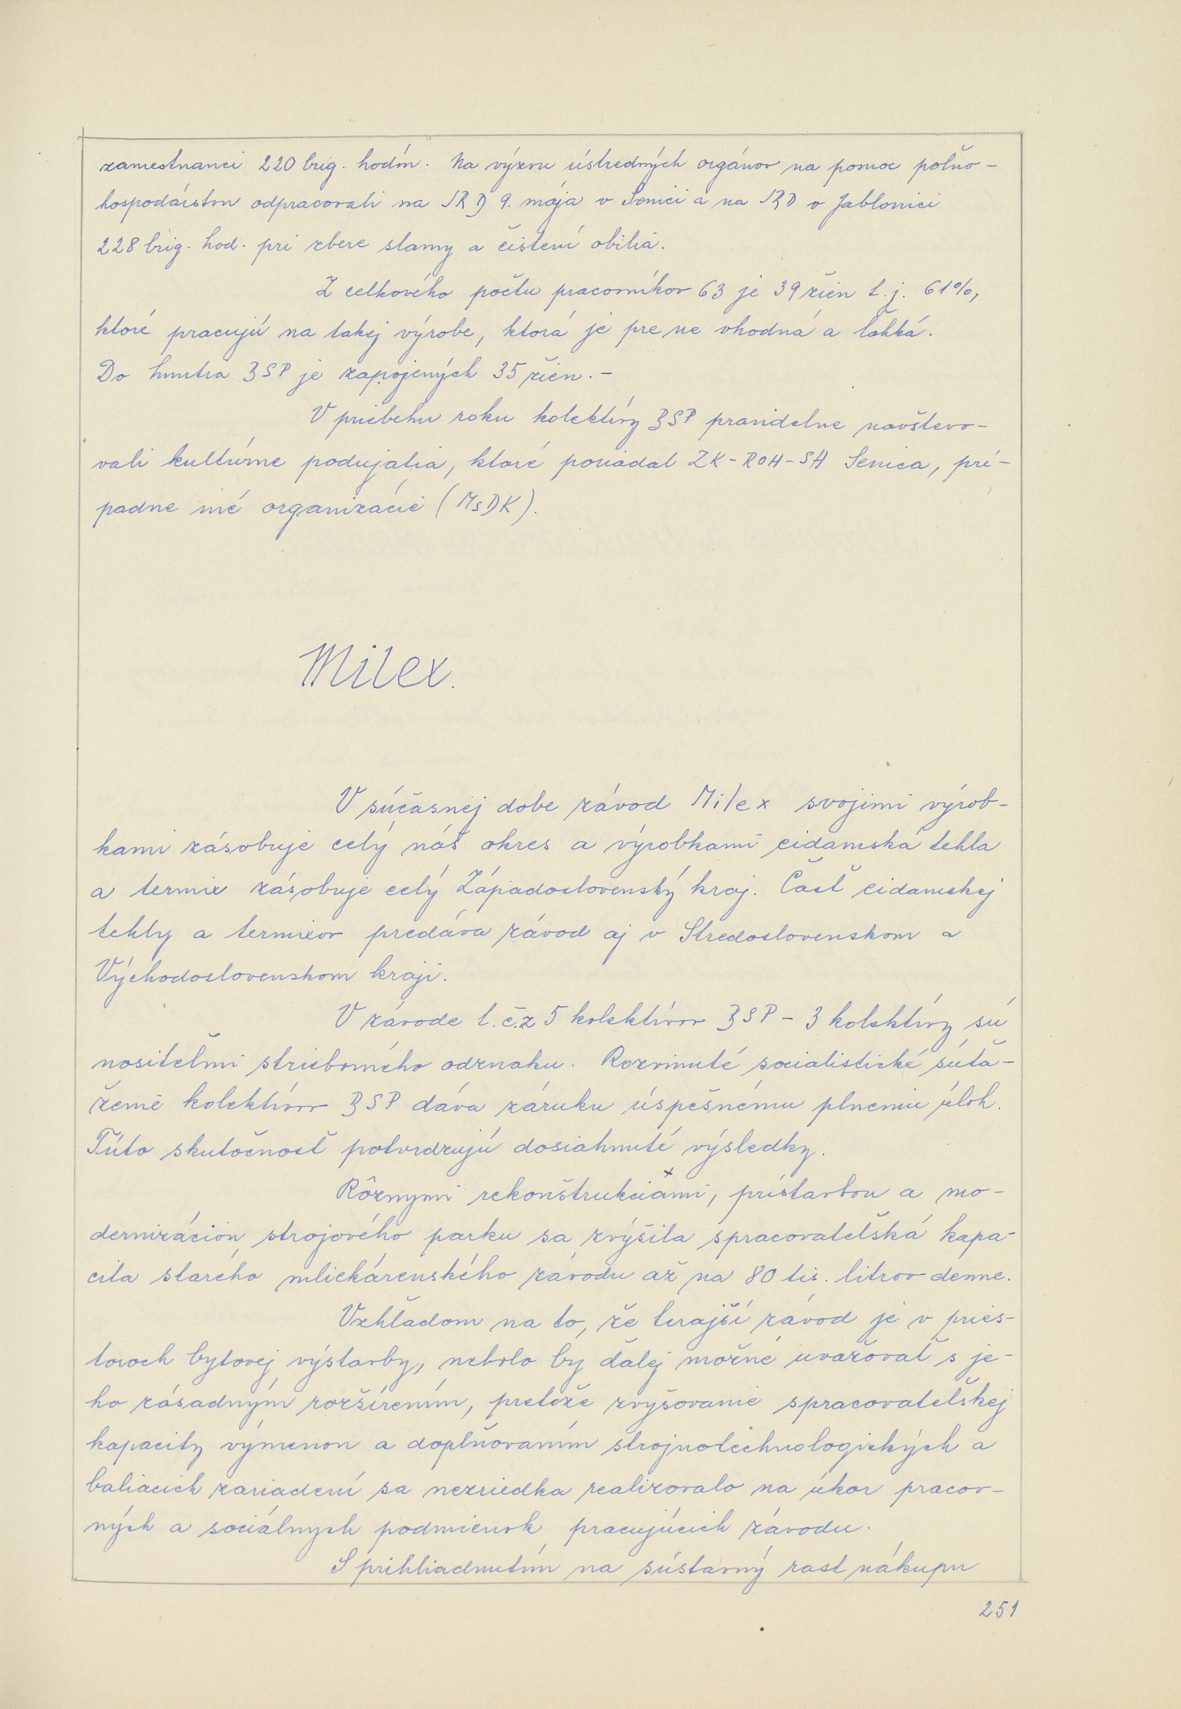 zamestnanci 220 brig. hodín. Na výzvu ústredných orgánov na pomoc poľno-
hospodárstvu odpracovali na JRD 9. mája v Senici a na JRD v Jablonici
228 brig. hod. pri zbere slamy a čistení obilia.
Z celkového počtu pracovníkov 63 je 39 žien t. j. 61%,
ktoré pracujú na takej výrobe, ktorá je pre ne vhodná a ľahká.
Do hnutia BSP je zapojených 35 žien. -
V priebehu roku kolektívy BSP pravidelne navštevo-
vali kultúrne podujatia, ktoré poriadal ZK-ROH-SH Senica, prí-
padne iné organizácie (MsDK).
Milex.
V súčasnej dobe závod Milex svojimi výrob-
kami zásobuje celý náš okres a výrobkami eidamská tehla
a termix zásobuje celý Západoslovenský kraj. Časť eidamskej
tehly a termixov predáva závod aj v Stredoslovenskom a
Východoslovenskom kraji.
V závode t. č. z 5 kolektívov BSP - 3 kolektívy sú
nositeľmi strieborného odznaku. Rozvinuté socialistické súťa-
ženie kolektívov BSP dáva záruku úspešnému plneniu úloh.
Túto skutočnosť potvrdzujú dosiahnuté výsledky.
Rôznymi rekonštrukciami, prístavbou a mo-
dernizáciou strojového parku sa zvýšila spracovateľská kapa-
cita starého mliekárenského závodu až na 80 tis. litrov denne.
Vzhľadom na to, že terajší závod je v pries-
toroch bytovej výstavby, nebolo by ďalej možné uvažovať s je-
ho zásadným rozšírením, pretože zvyšovanie spracovateľskej
kapacity výmenou a doplňovaním strojnotechnologických a
baliacich zariadení sa nezriedka realizovalo na úkor pracov-
ných a sociálnych podmienok pracujúcich závodu.
S prihliadnutím na sústavný rast nákupu
251